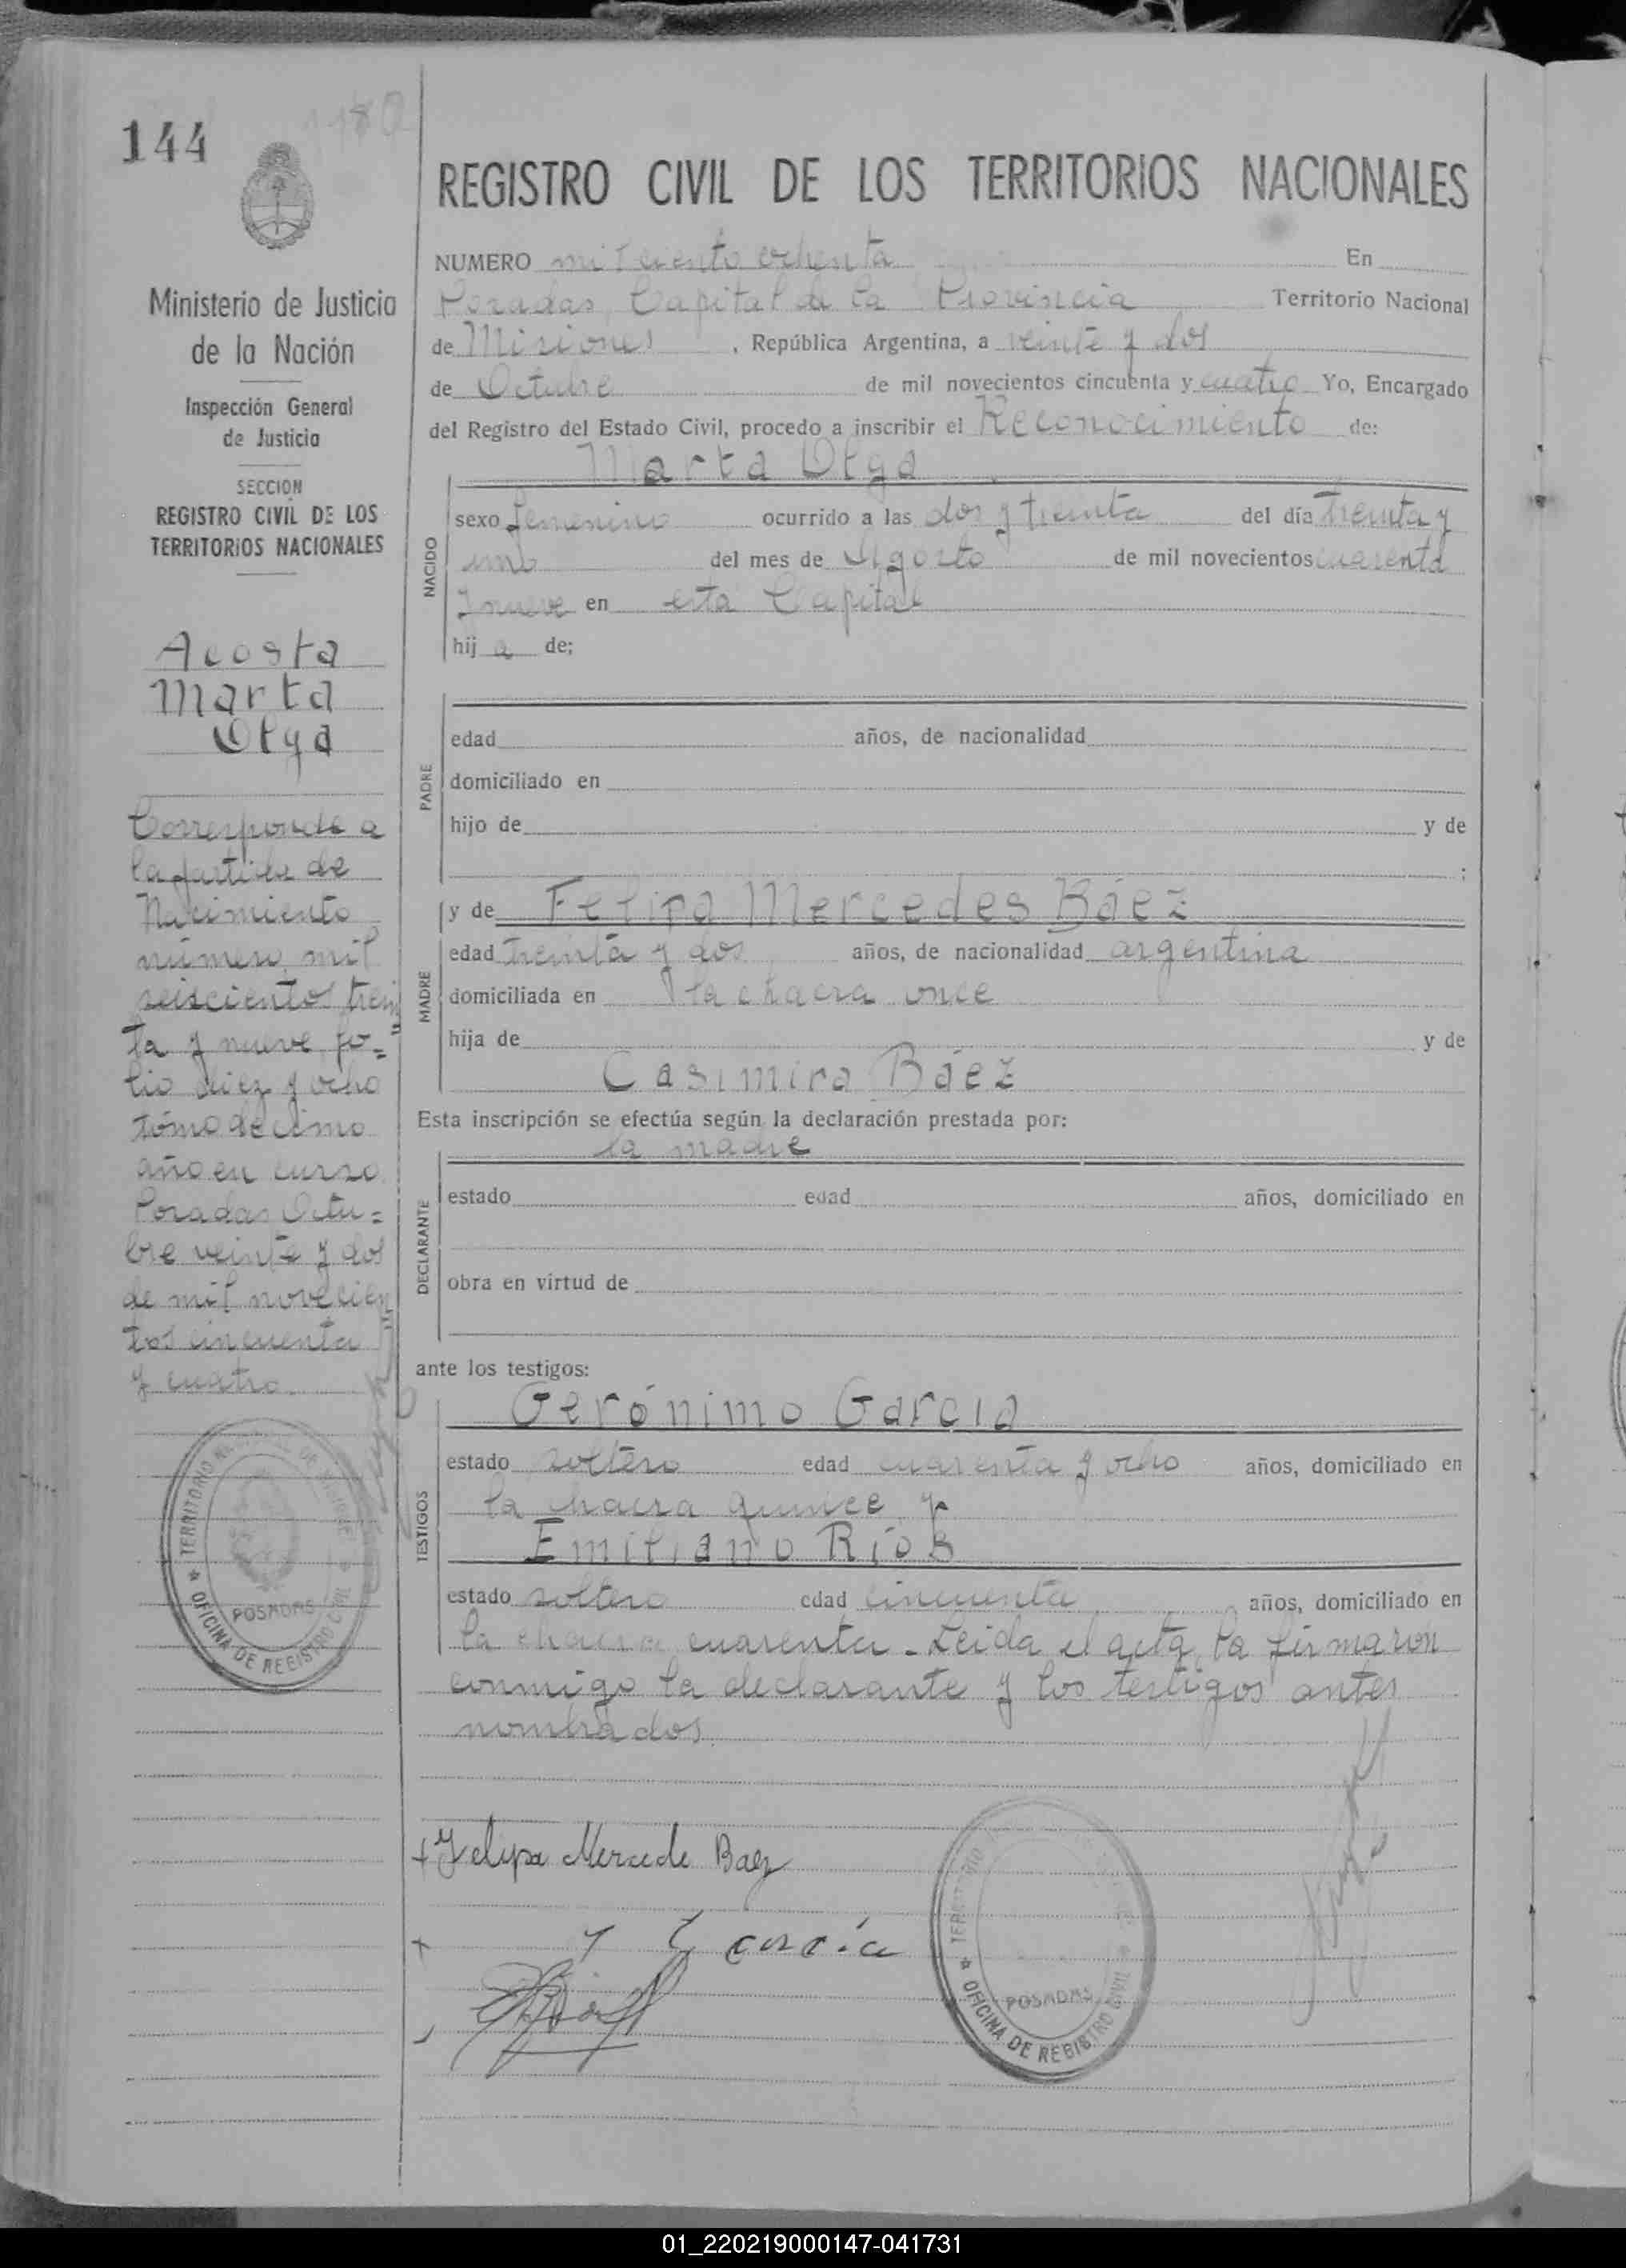 144
1180
REGISTRO CIVIL DE LOS TERRITORIOS NACIONALES
Ministerio de Justicia
de la Nación
Inspección General
de Justicia
SECCION
REGISTRO CIVIL DE LOS
TERRITORIOS NACIONALES
Acosta
Marta
Olga
Corresponde a
la partida de
Nacimiento
número mil
seisciento trein
ta y nueve fo=
lio diez y ocho
tómo décimo
año en curso
Posadas Octu=
bre veinte y dos
de mil novecien
tos cincuenta
y cuatro
TERRITORIO NACIONAL DE MISIONES
POSADAS
OFICINA DE REGISTRO CIVIL
NUMERO mil ciento ochenta En
Posadas, Capital de la Provincia Territorio Nacional
de Misiones, República Argentina, a veinte y dos
de Octubre de mil novecientos cincuenta y cuatro Yo, Encargado
del Registro del Estado Civil, procedo a inscribir el Reconocimiento de:
Marta Olga
NACIDO
sexo femenino ocurrido a las dos y treinta del día treinta y
uno del mes de Agosto de mil novecientos cuarenta
y nueve en esta Capital
hij a de;
PADRE
edad años, de nacionalidad
domiciliado en
hijo de y de
;
MADRE
y de Felipa Mercedes Báez
edad treinta y dos años, de nacionalidad argentina
domiciliada en la chacra once
hija de y de
Casimira Báez
Esta inscripción se efectúa según la declaración prestada por:
la madre
DECLARANTE
estado edad años, domiciliado en
obra en virtud de
ante los testigos:
TESTIGOS
Gerónimo García
estado soltero edad cuarenta y ocho años, domiciliado en
la chacra quince y
Emiliano Ríos
estado soltero edad cincuenta años, domiciliado en
la chacra cuarenta - Leida el acta, la firmaron
conmigo la declarante y los testigos antes
nombrados
+ Felipa Mercede Baez
+ García
TERRITORIO
POSADAS
OFICINA DE REGISTRO CIVIL
01_220219000147-041731